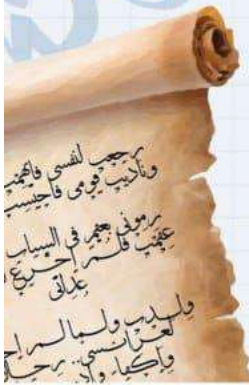 رجعت لنفسي فاتهمت
وناديت قومي فاحتسبت
رموني بعقم في الشباب
عقمت فلم أجزع
عداتي
ولدت ولما لم أجد
لعرائسي.. رجالا
وأكفاء وأد